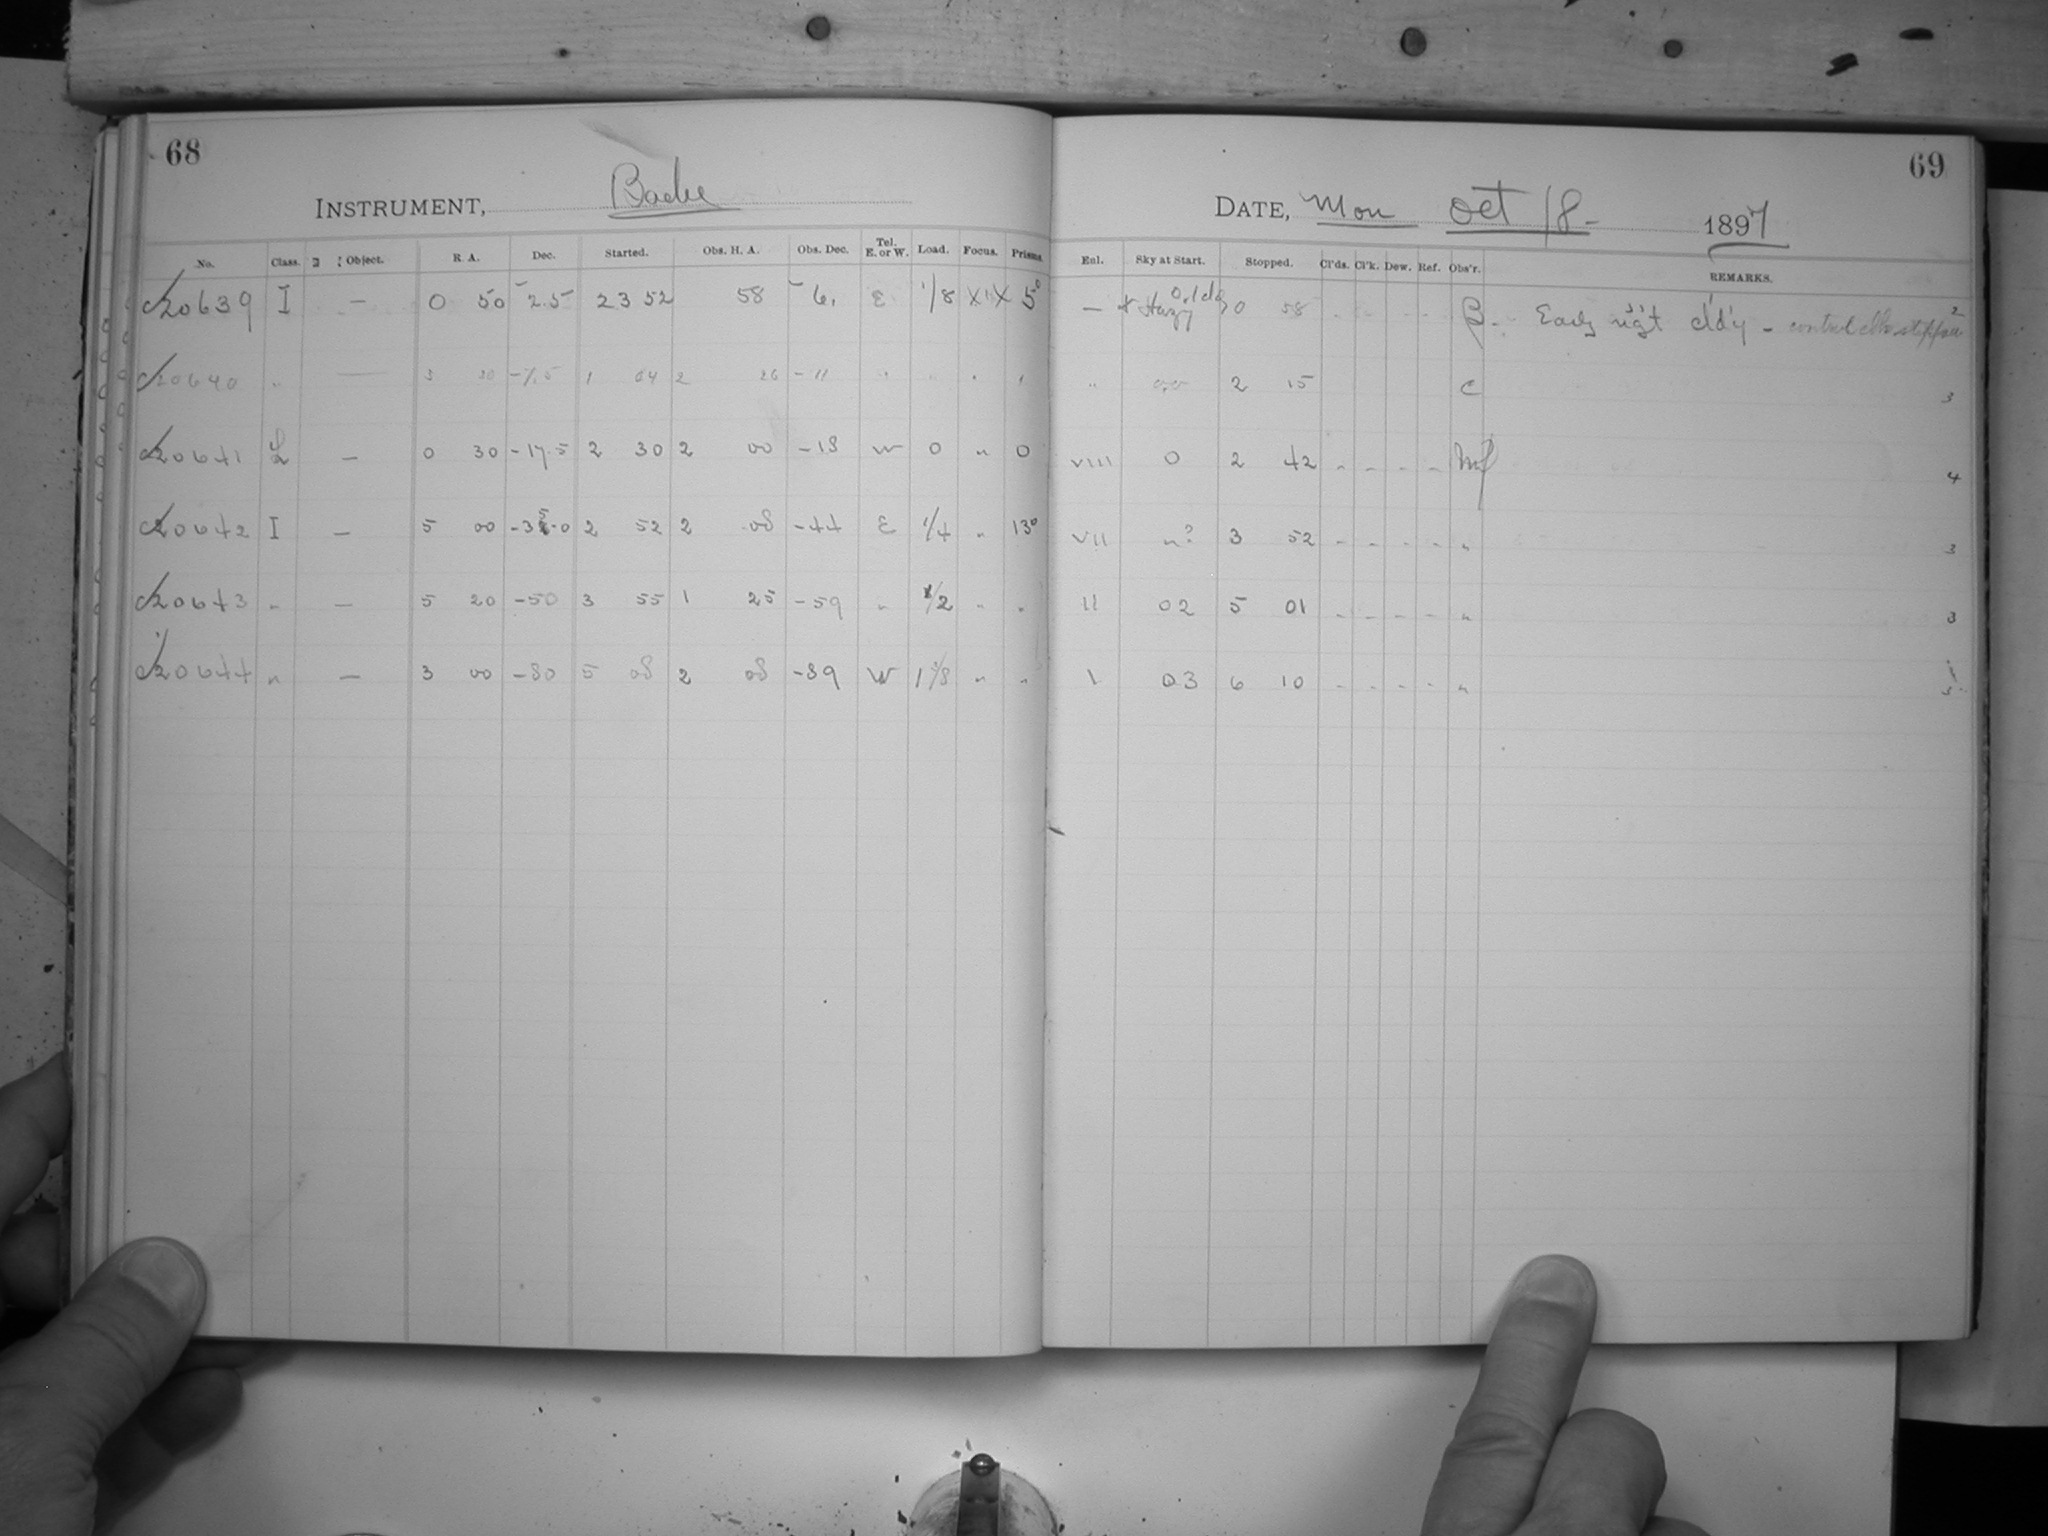 68
INSTRUMENT, Bache
No. Class. Object. R. A. Dec. Started. Obs. H. A. Obs. Dec. Tel. E. or W. Load. Focus. Prisms.
20639 I — 0 50 -2.5 23 52 58 -6. E 1/8 5°
20640 " — -7.5 1 04 2 26 -11 " " " "
20641 L — 0 30 -17.5 2 30 2 00 -18 W 0 " 0
20642 I — 5 00 2 52 2 08 -44 E 1/4 " 13°
20643 " — 5 20 -50 3 55 1 25 -59 " 1/2 " "
20644 " — 3 00 -80 5 08 2 08 -89 W " "
69
DATE, Mon Oct 18- 1897
Enl. Sky at Start. Stopped. Cl'ds. Cl'k. Dew. Ref. Obs'r. REMARKS.
— Hazy 0 58 - - - - B. Early night cld'y - 2
" 2 15 C 3
VIII 0 2 42 - - - - 4
VII "? 3 52 - - - - " 3
II 02 5 01 - - - - " 3
I 03 6 10 - - - - " 3